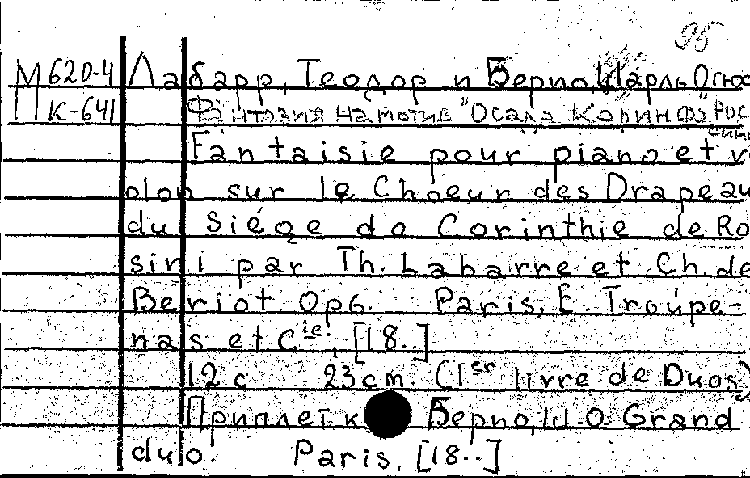 95
М 620-4 Лабарр, Теодор и Берио, Шарль Огюс
К-641 Фантазия на мотив "Осада Коринфа" Рос
сини
Fantaisie pour piano et vi
olon sur le Choeur des Drapeau
du Siége do Corinthie de Ro
sini par Th. Labarre et Ch. de
Beriot Op6. Paris, E. Troupe-
nas et Cie, [18..]
12 c 23 cm. (1er livre de Duos)
Приплет к Берио, Ш О. Grand
duo. Paris, [18..]